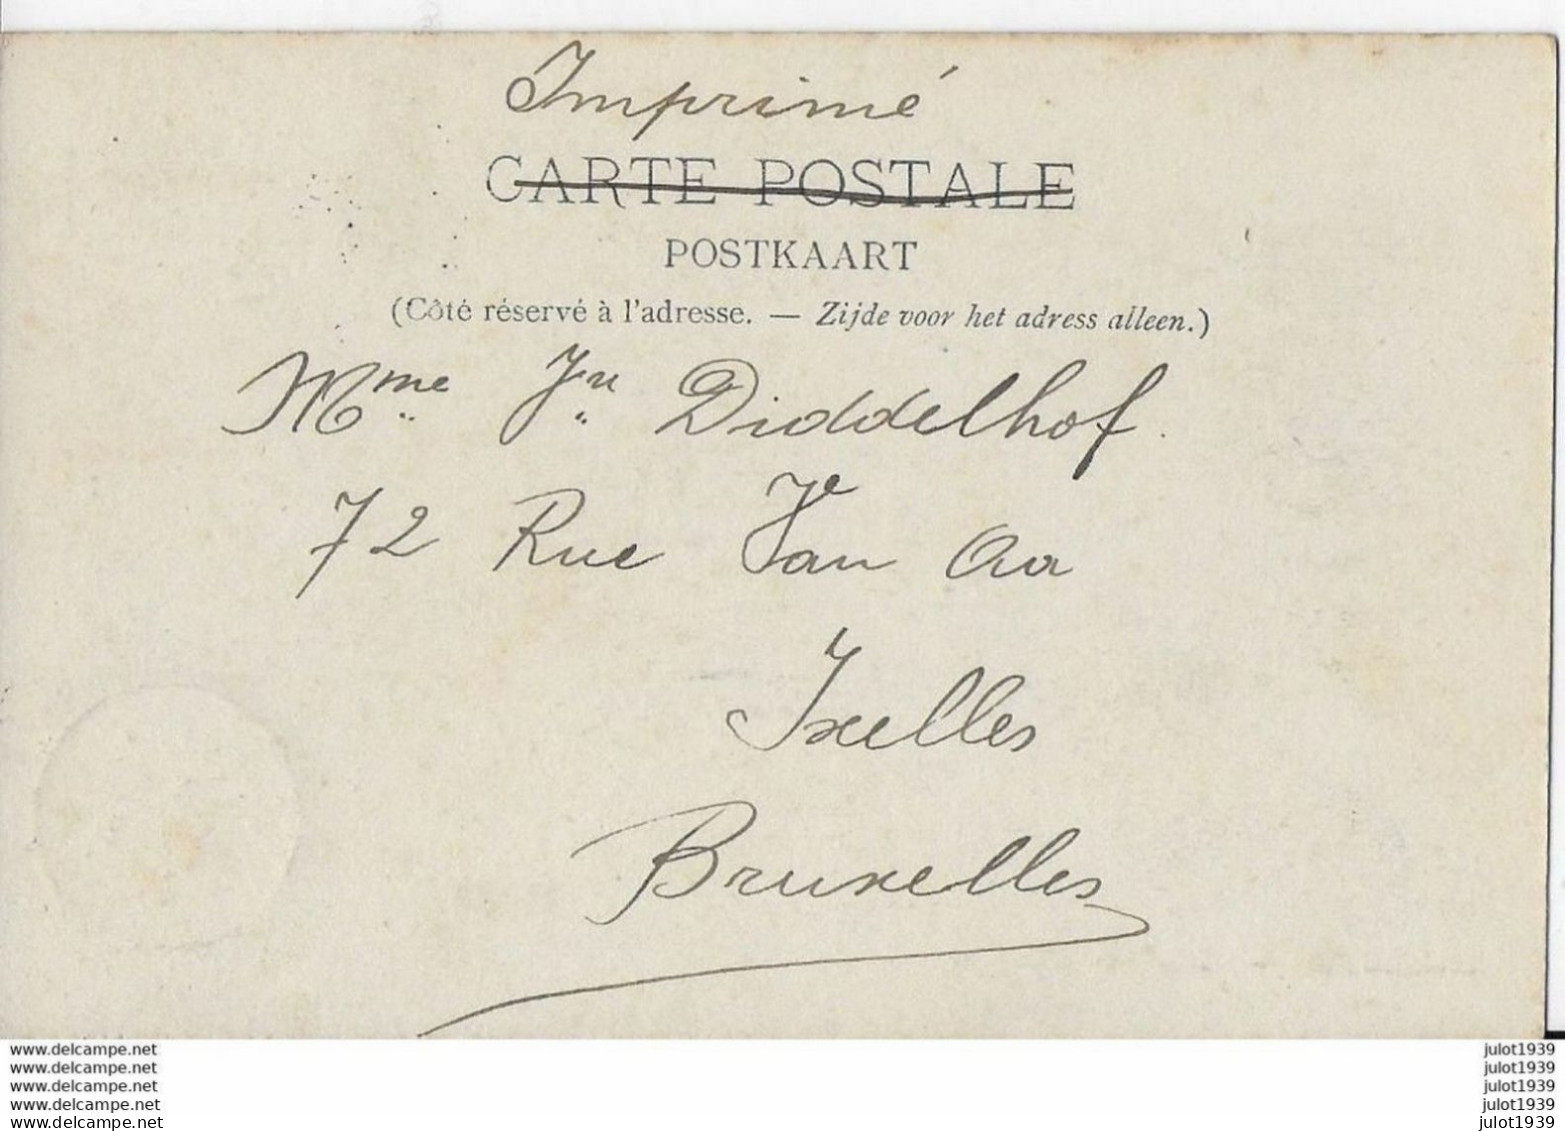 Imprimé
CARTE POSTALE
POSTKAART
(Côté réservé à l'adresse. — Zijde voor het adress alleen.)
Mme Jn Diddelhof.
72 Rue Van Aa
Ixelles
Bruxelles
www.delcampe.net
www.delcampe.net
www.delcampe.net
www.delcampe.net
www.delcampe.net
julot1939
julot1939
julot1939
julot1939
julot1939